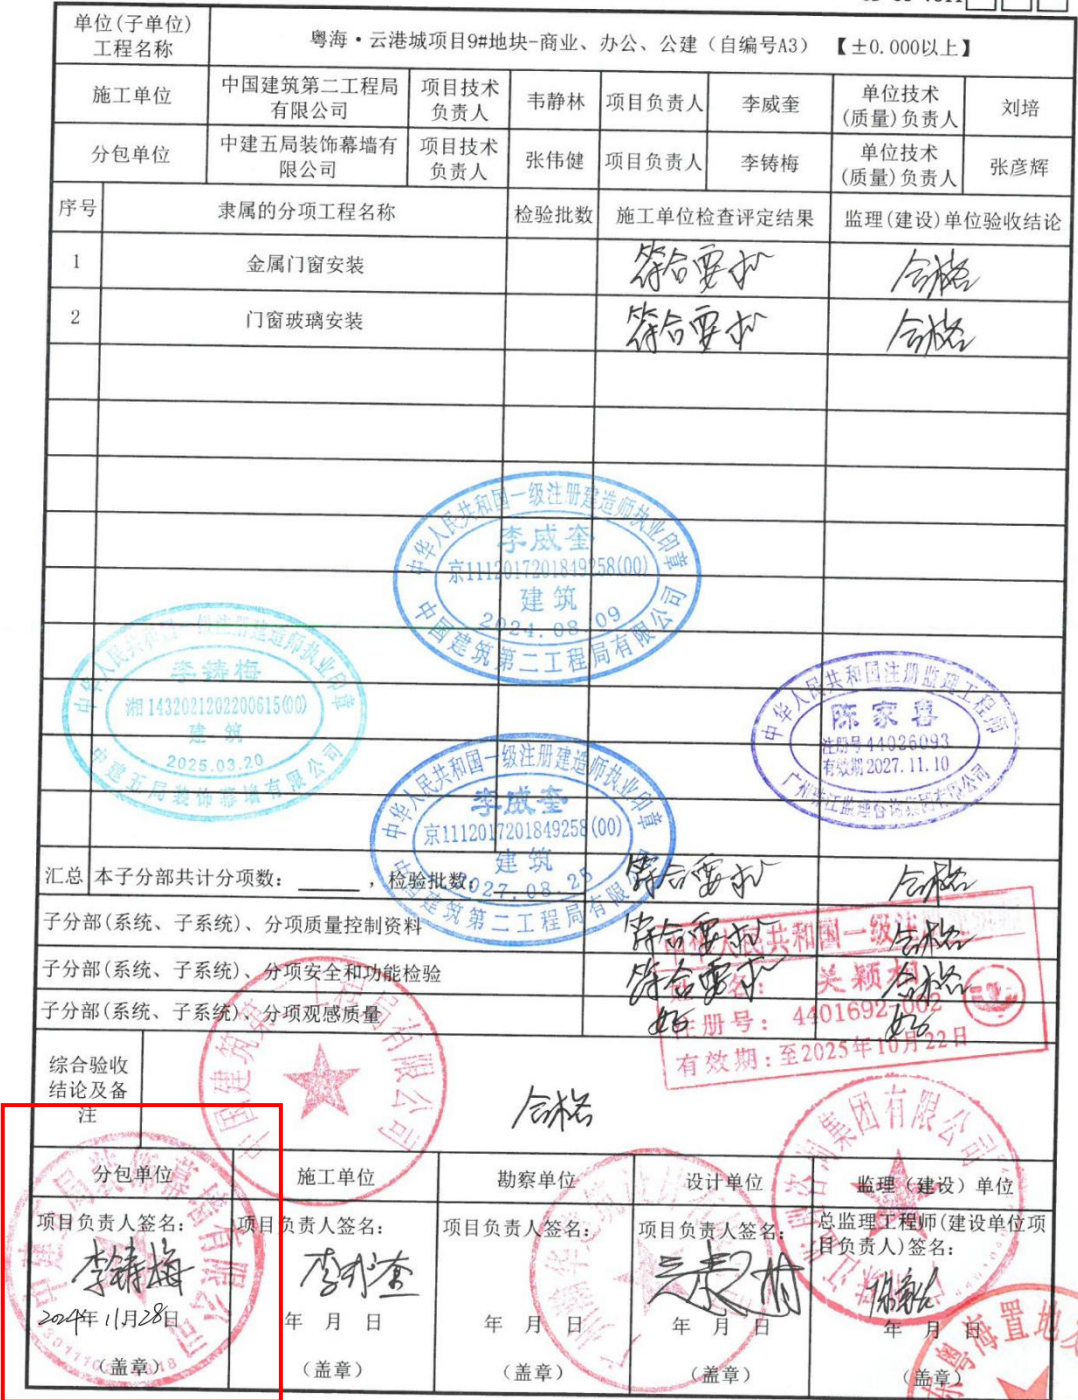 单位(子单位)
工程名称
粤海·云港城项目9#地块-商业、办公、公建（自编号A3）【±0.000以上】
施工单位
中国建筑第二工程局
有限公司
项目技术
负责人
韦静林
项目负责人
李威奎
单位技术
(质量)负责人
刘培
分包单位
中建五局装饰幕墙有
限公司
项目技术
负责人
张伟健
项目负责人
李铸梅
单位技术
(质量)负责人
张彦辉
序号
隶属的分项工程名称
检验批数
施工单位检查评定结果
监理(建设)单位验收结论
1
金属门窗安装
符合要求
合格
2
门窗玻璃安装
符合要求
合格
中华人民共和国一级注册建造师执业印章
李威奎
京1112017201849258(00)
建筑
2024.08.09
中国建筑第二工程局有限公司
中华人民共和国一级注册建造师执业印章
李铸梅
湘1432021202200615(00)
建筑
2025.03.20
中建五局装饰幕墙有限公司
中华人民共和国注册监理工程师
陈家喜
注册号44026093
有效期2027.11.10
中华人民共和国一级注册建造师执业印章
李威奎
京1112017201849258(00)
建筑
2027.08.25
中国建筑第二工程局有限
汇总
本子分部共计分项数：____，检验批数：
符合要求
合格
子分部(系统、子系统)、分项质量控制资料
符合要求
合格
子分部(系统、子系统)、分项安全和功能检验
符合要求
合格
子分部(系统、子系统)、分项观感质量
好
好
人民共和国一级注
关颖
注册号：4401692-002
有效期：至2025年10月22日
综合验收
结论及备
注
合格
分包单位
施工单位
勘察单位
设计单位
监理（建设）单位
项目负责人签名：
李铸梅
2024年11月28日
（盖章）
项目负责人签名：
李威奎
年 月 日
（盖章）
项目负责人签名：
年 月 日
（盖章）
项目负责人签名：
年 月 日
（盖章）
总监理工程师(建设单位项
目负责人)签名：
年 月 日
（盖章）
粤海置地